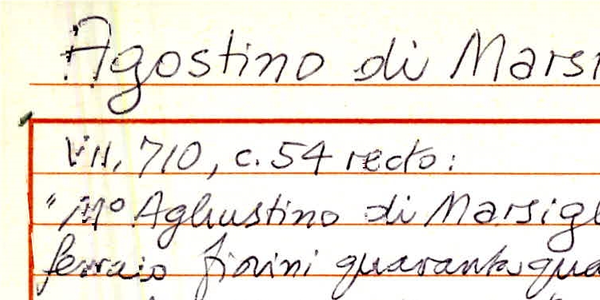 Agostino di Marsi
VII, 710, c. 54 recto:
"Mº Aghustino di Marsigl
ferraio fiorini quaranta qua